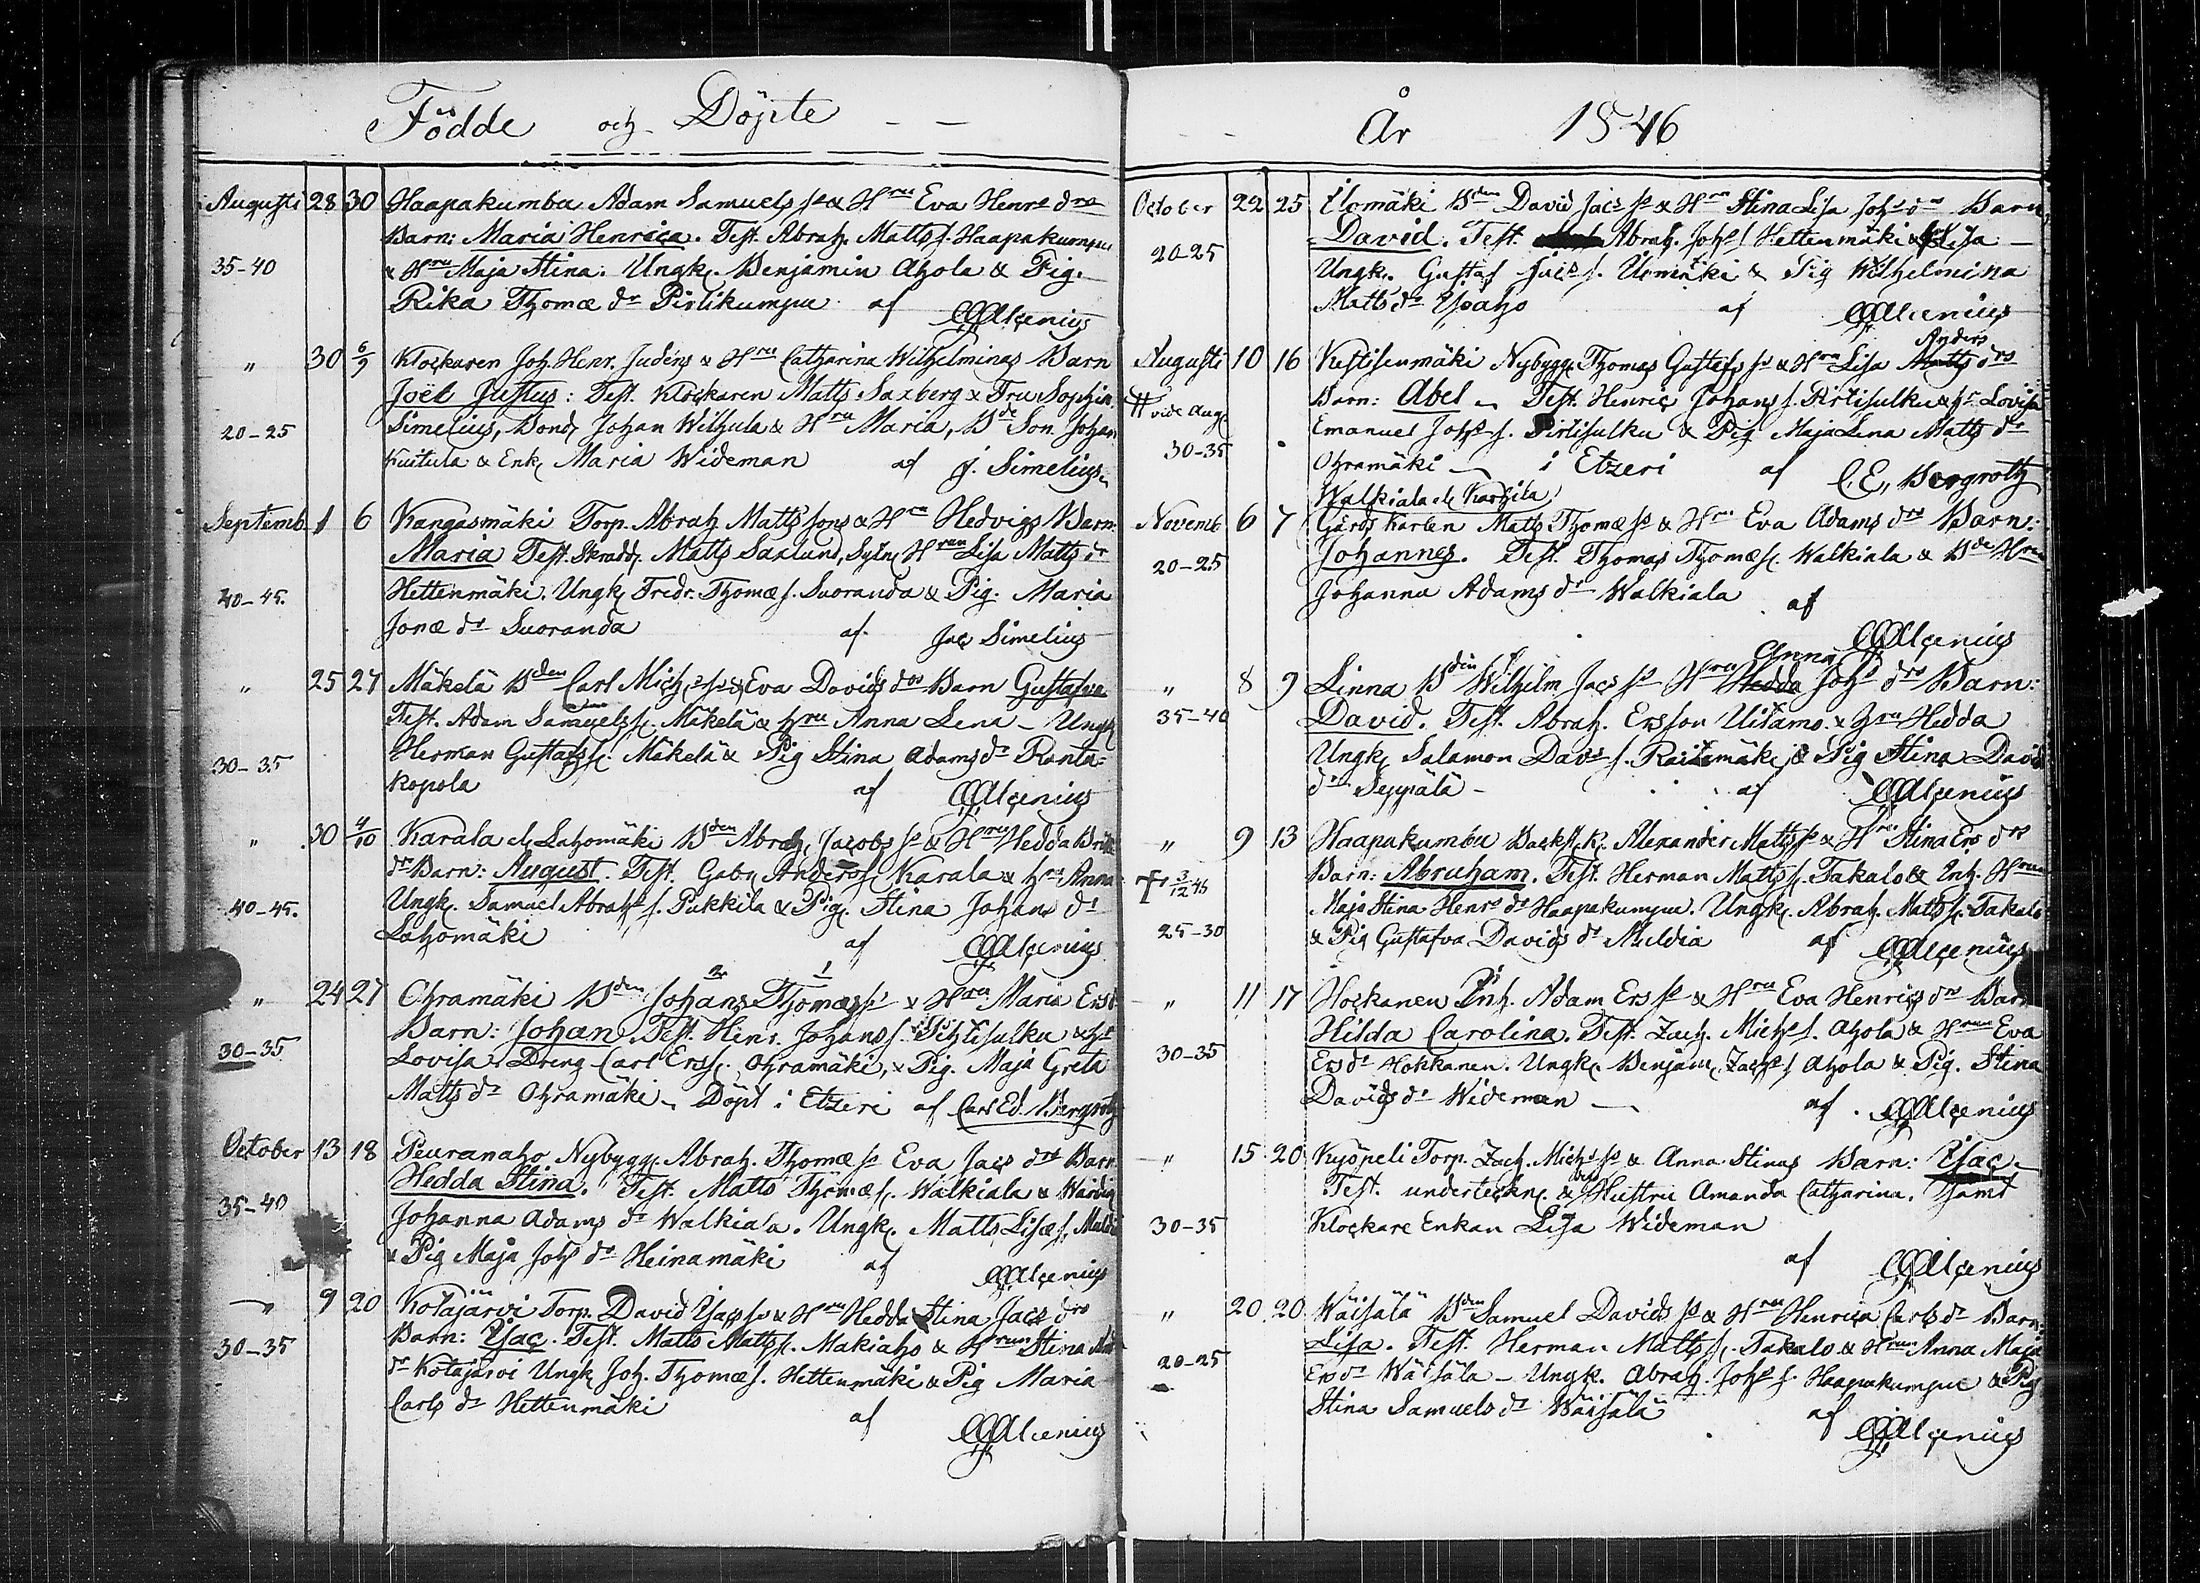 Födde och Döpte — —
Augusti 28 30 Haapakumba Adam Samuels so & Hru Eva Henrs drs
Barn: Maria Henrica. Test. Abrah. Matts s. Haapakumpu
35-40 & Hru Maja Stina. Ungk. Benjamin Ahola & Pig.
Rika Thomæ dr Pirlikumpu af Alcenius
„ 30 6/9 Klockaren Joh. Henr. Judéns & Hru Catharina Wilhelminas Barn
Joël Justus: Test. Klockaren Matts Saxberg & Fru Sophia
20-25 Simelius, Bond. Johan Wilhula & Hru Maria, Bde Son Johan
Kuitula & Enk. Maria Wideman af J. Simelius
Septemb. 1 6 Kangasmäki Torp. Abrah. Matts sons & Hru Hedvigs Barn:
Maria Test. Skradd. Matts Saxlund, Hrun Lisa Matts dr
40-45. Hettenmäki. Ungk. Fredr. Thomæ s. Suoranda & Pig. Maria
Jonæ dr Suoranda af Jac Simelius
„ 25 27 Mäkelä Bden Carl Michs so & Eva Davids drs Barn Gustafva
Test. Adam Samuelss. Mäkelä & Hru Anna Lena – Ungk
30-35 Herman Gustafss. Mäkelä & Pig Stina Adams dr Ranta=
kopola af Alcenius
„ 30 4/10 Karala el. Lahomäki Bden Abrah. Jacobs so & Hru Hedda
dr Barn: August. Test. Gabr Anderss. Karala & Hru Anna
40-45. Ungk. Samuel Abrahs s. Pukkila & Pig. Stina Johans dr
Lahomäki af Alcenius
„ 24 27 Ohramäki Bden Johans 2 Thomas so 1 & Hru Maria Ers
Barn: Johan. Test. Henr. Johans s. Pirtisulku & Hu
30-35 Lovisa. Dreng Carl Erss. Ohramäki, & Pig. Maja Greta
Matts dr Ohramäki – Döpt i Etzeri af Carl Ed. Bergroth
October 13 18 Peuranaho Nybygg. Abrah. Thomæ so Eva Jacs drs Barn
Hedda Stina. Test. Matts Thomæ s. Walkiala & Wärdin
35-40 Johanna Adams dr Walkiala. Ungk. Matts Lisæ s.
& Pig Maja Johs dr Heinamäki af Alcenius
„ 9 20 Kotajärvi Torp. David Isacs so & Hru Hedda Stina Jacs drs
Barn: Isac. Test. Matts Matts s. Makiaho & Hrun Stina
30-35 dr Kotajärvi Ungk Joh. Thomæ s. Hettenmäki & Pig Maria
Carls dr Hettenmäki af Alcenius
- - År 1846
October 22 25 Ilomäki Bden David Jacs so & Hru Stina Lisa Johs drs Barn
David. Test. Abrah. Johs s. Hettenmäki & Lisa –
20-25 Ungk. Gustaf Jacs s. & Pig Wilhelmina
Matts dr Ypaho af Alcenius
Anders
Augusti 10 16 Kestisenmäki Nybygg. Thomas Gustafs so & Hru Lisa Matts drs
vide Aug. Barn: Abel – Test. Henric Johans s. Pirtisulku & Hr Lovisa
Emanuel Johs s. Pirtisulku & Pig Maja Lena Matts dr
30-35 Ohramäki – i Etzeri af C. E. Bergroth
Walkiala el. Karhila
Novemb 6 7 Gårds Karlen Matts Thomæ so & Hru Eva Adams drs Barn:
20-25 Johannes. Test. Thomas Thomæ s. Walkiala & Bde Hru
Johanna Adams dr Walkiala af
Alcenius
Anna
„ 8 9 Linna Bden Wilhelm Jacs so Hru Hedda Johs drs Barn:
35-40 David. Test. Abrah. Ersson Uitamo & Hru Hedda
Ungk. Salamon Davs s. & Pig Stina David
dr Seppälä – af Alcenius
„ 9 13 Haapakumbu Backst.k. Alexander Matts so & Hru Stina Ers drs
† 3/12 46 Barn: Abraham. Test. Herman Matts s. Takalo & Inh. Hrun
Maja Stina Henrs dr Haapakumpu. Ungk. Abrah. Matts s. Takalo
25-30 & Pig Gustafva Davids dr Muldia af Alcenius
„ 11 17 Hockanen Inh. Adam Ers so & Hru Eva Henrics drs Barn
Hilda Carolina. Test. Zach. Michs s. Ahola & Hrun Eva
30-35 Ers dr Hokkanen. Ungk. Benjam. Zachs s Ahola & Pig. Stina
Davids dr Wideman – af Alcenius
„ 15 20 Kyöpeli Torp. Zach. Michs so & Anna Stinas Barn: Isac –
Test. underteckn. & Hustru Amanda Catharina. samt
30-35 Klockare Enkan Lisa Wideman
af Alcenius
„ 20 20 Wäisälä Bden Samuel Davids so & Hru Henrica Carls dr Barn
Lisa. Test. Herman Matts s. Takalo & Hrun Anna Maja
20-25 Ers dr Wäisälä – Ungk. Abrah. Johs s. Haapakumpu & Pig
Stina Samuels dr Wäisälä af Alcenius